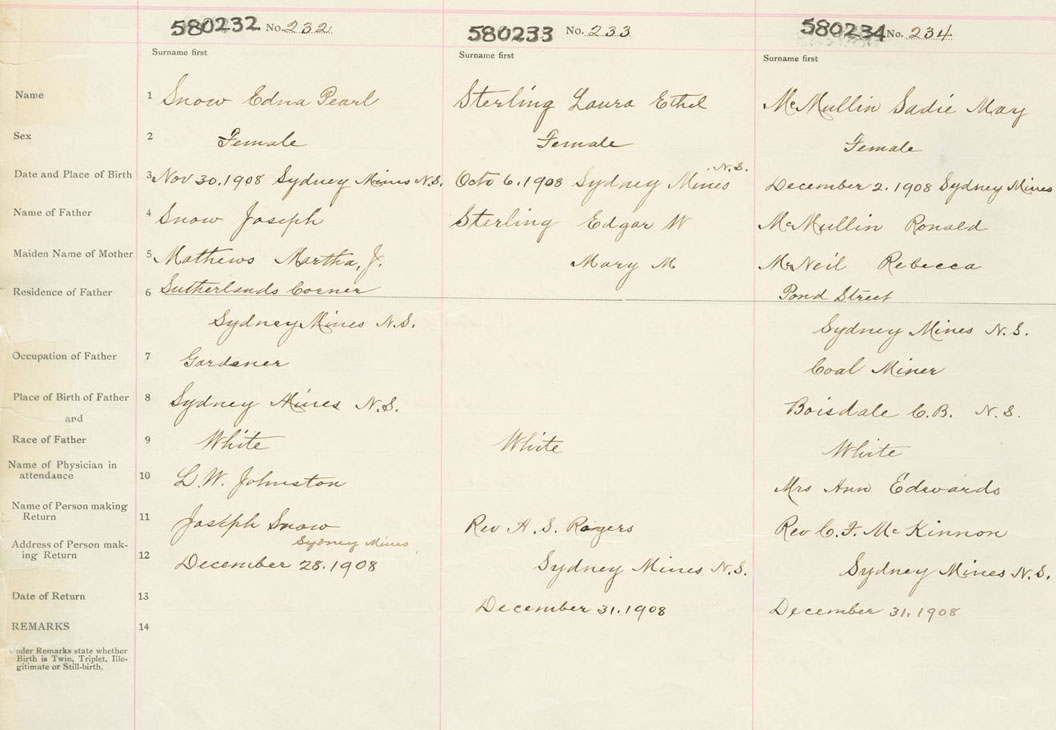 580232 No. 232
580233 No. 233
580234 No. 234
Surname first
Surname first
Surname first
Name 1 Snow Edna Pearl Sterling Laura Ethel McMullin Sadie May
Sex 2 Female Female Female
Date and Place of Birth 3 Nov 30.1908 Sydney Mines N.S. Octo 6.1908 Sydney Mines N.S. December 2.1908 Sydney Mines
Name of Father 4 Snow Joseph Sterling Edgar W McMullin Ronald
Maiden Name of Mother 5 Mathews Martha, J. Mary M McNeil Rebecca
Residence of Father 6 Sutherlands Corner Pond Street
Sydney Mines N.S. Sydney Mines N.S.
Occupation of Father 7 Gardener Coal Miner
Place of Birth of Father 8 Sydney Mines N.S. Boisdale C.B. N.S.
and
Race of Father 9 White White White
Name of Physician in
attendance 10 L.W. Johnston Mrs Ann Edwards
Name of Person making
Return 11 Joseph Snow Rev A. S. Rogers Rev C. F. McKinnon
Address of Person mak-
ing Return 12 Sydney Mines Sydney Mines N.S. Sydney Mines N.S.
December 28.1908
Date of Return 13 December 31.1908 December 31.1908
REMARKS 14
nder Remarks state whether
Birth is Twin, Triplet, Ille-
gitimate or Still-birth.